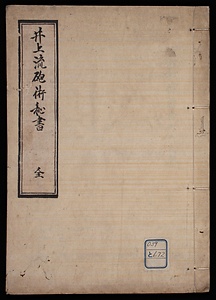 井上流砲術秘書
全
059